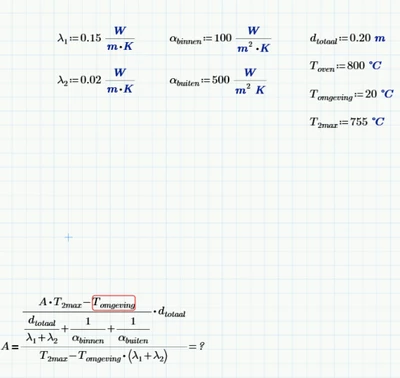 λ₁:=0.15 W/(m·K) α_binnen:=100 W/(m²·K) d_totaal:=0.20 m
T_oven:=800 °C
λ₂:=0.02 W/(m·K) α_buiten:=500 W/(m² K)
T_omgeving:=20 °C
T_2max:=755 °C
A·T_2max−T_omgeving
d_totaal/(λ₁+λ₂)+1/α_binnen+1/α_buiten ·d_totaal
A= =?
T_2max−T_omgeving·(λ₁+λ₂)